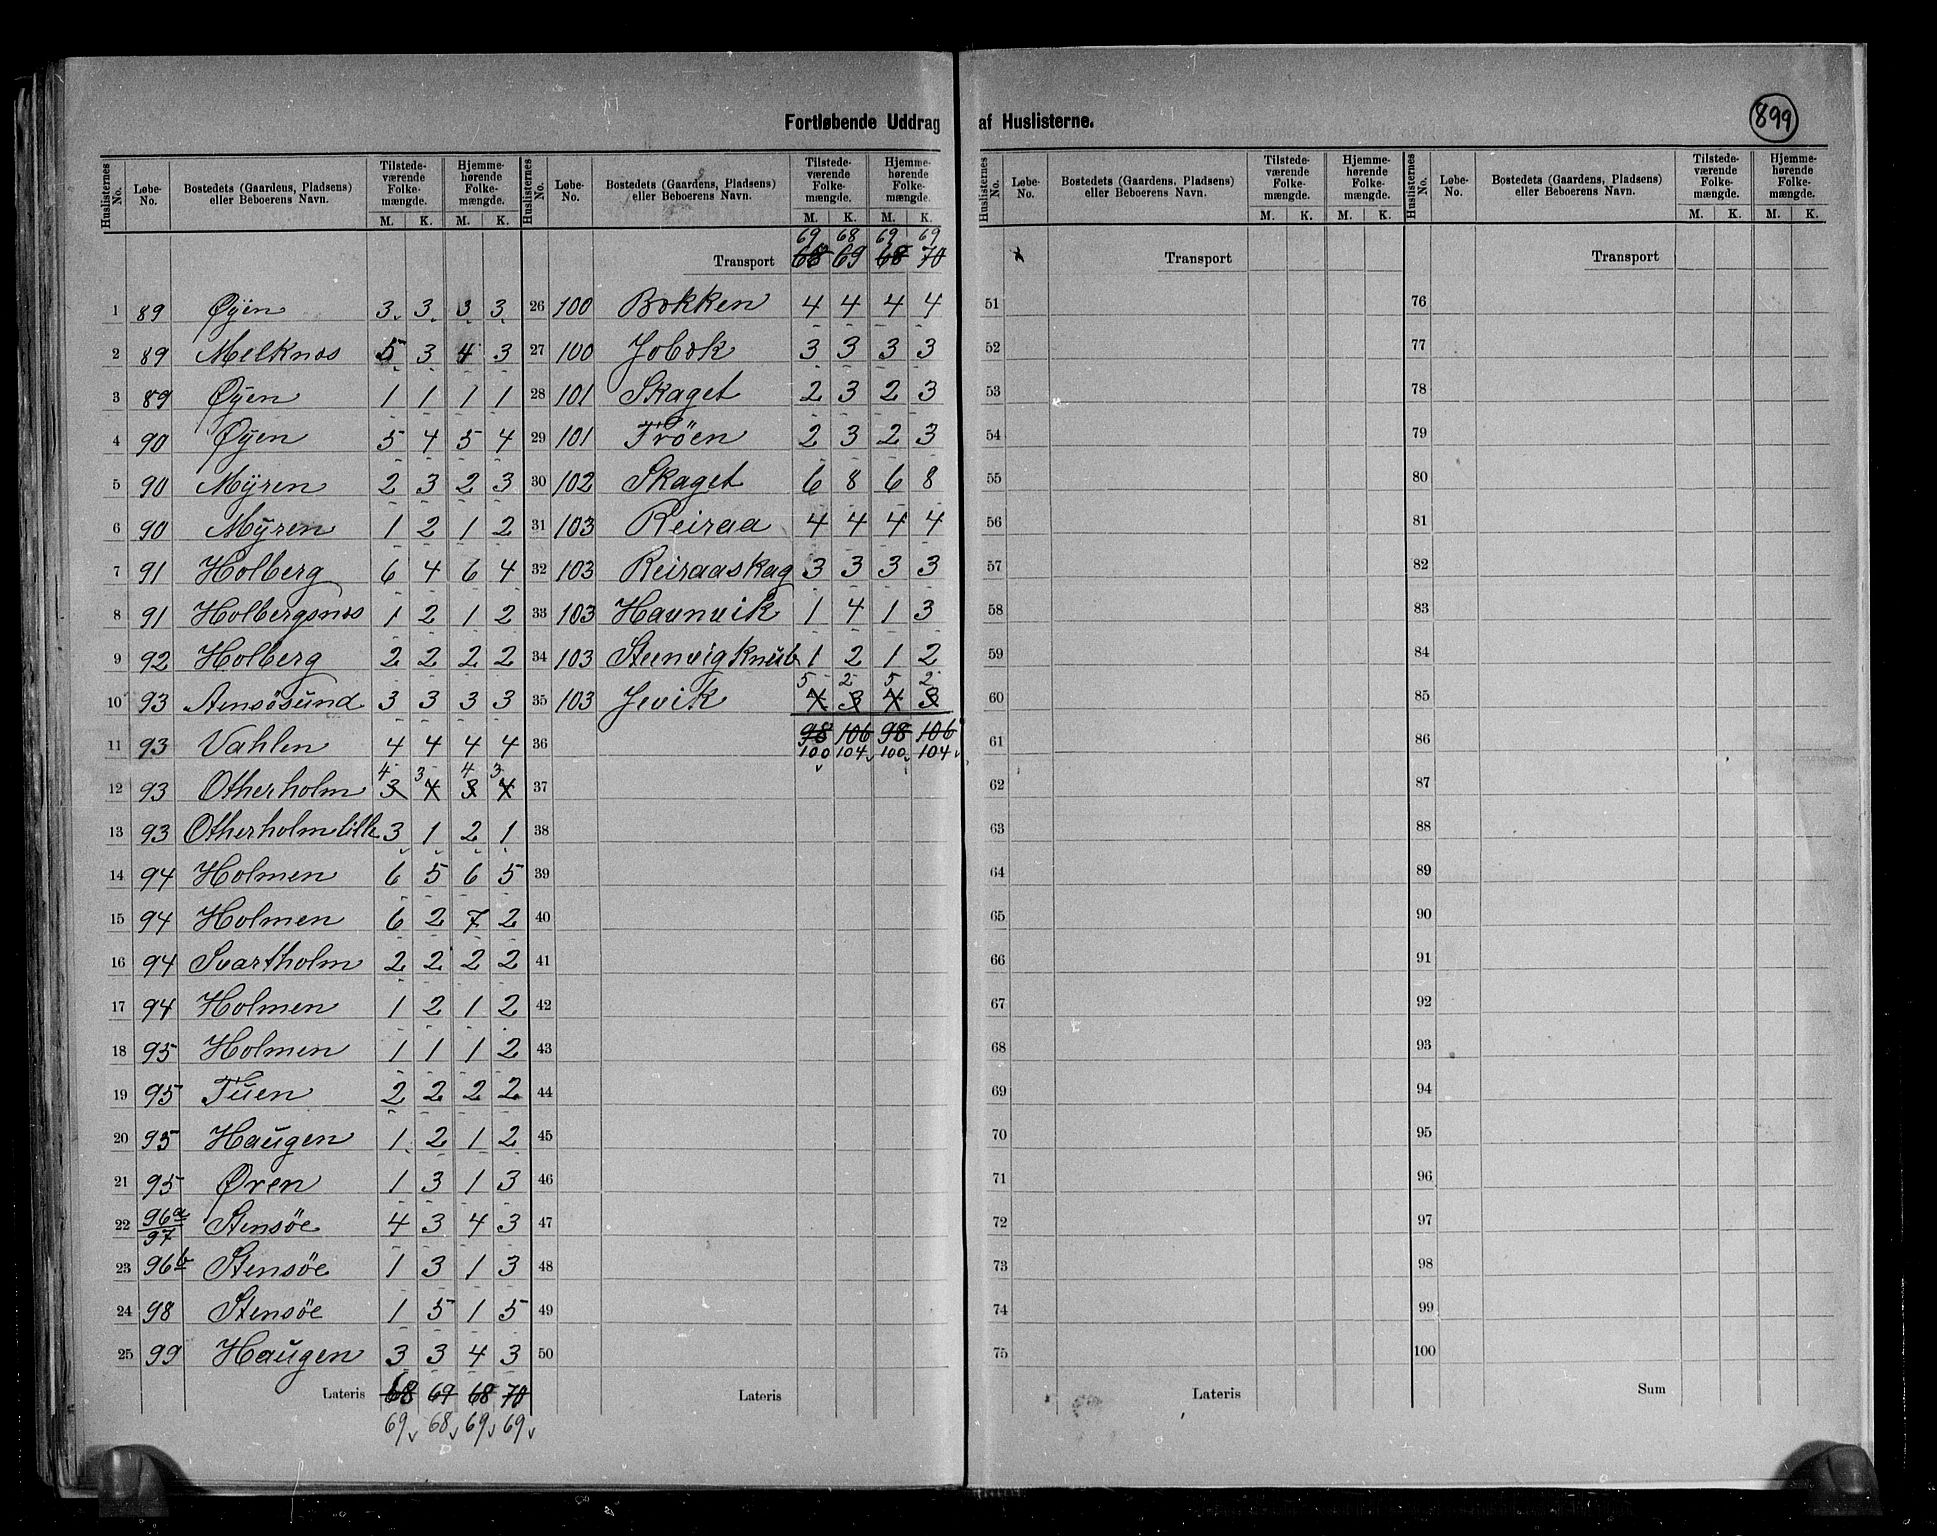 Fortløbende Uddrag af Huslisterne.
899
Huslisternes No. Løbe-No. Bostedets (Gaardens, Pladsens) eller Beboerens Navn. Tilstedeværende Folkemængde. Hjemmehørende Folkemængde.
M. K. M. K.
1 89 Øÿen 3 3 3 3
2 89 Melknos 5 3 4 3
3 89 Øÿen 1 1 1 1
4 90 Øÿen 5 4 5 4
5 90 Mÿren 2 3 2 3
6 90 Mÿren 1 2 1 2
7 91 Holberg 6 4 6 4
8 91 Holbergsnos 1 2 1 2
9 92 Holberg 2 2 2 2
10 93 Aensösund 3 3 3 3
11 93 Vahlen 4 4 4 4
4 3 4 3
12 93 Otherholm 3 4 3 4
13 93 Otherholm lille 3 1 2 1
14 94 Holmen 6 5 6 5
15 94 Holmen 6 2 7 2
16 94 Svartholm 2 2 2 2
17 94 Holmen 1 2 1 2
18 95 Holmen 1 1 1 2
19 95 Tuen 2 2 2 2
20 95 Haugen 1 2 1 2
21 95 Øren 1 3 1 3
22 96a/97 Stensöe 4 3 4 3
23 96b Stensöe 1 3 1 3
24 98 Stensöe 1 5 1 5
25 99 Haugen 3 3 4 3
Lateris 68 69 68 70
69 68 69 69
Huslisternes No. Løbe-No. Bostedets (Gaardens, Pladsens) eller Beboerens Navn. Tilstedeværende Folkemængde. Hjemmehørende Folkemængde.
M. K. M. K.
69 68 69 69
Transport 68 69 68 70
26 100 Bokken 4 4 4 4
27 100 Jobok 3 3 3 3
28 101 Skaget 2 3 2 3
29 101 Tröen 2 3 2 3
30 102 Skaget 6 8 6 8
31 103 Reiraa 4 4 4 4
32 103 Reiraaskag 3 3 3 3
33 103 Havnvik 1 4 1 3
34 103 Steenvigknub 1 2 1 2
5 2 5 2
35 103 Jevik 4 3 4 3
36 98 106 98 106
100 104 100 104
37
38
39
40
41
42
43
44
45
46
47
48
49
50
Lateris
Huslisternes No. Løbe-No. Bostedets (Gaardens, Pladsens) eller Beboerens Navn. Tilstedeværende Folkemængde. Hjemmehørende Folkemængde.
M. K. M. K.
Transport
51
52
53
54
55
56
57
58
59
60
61
62
63
64
65
66
67
68
69
70
71
72
73
74
75
Lateris
Huslisternes No. Løbe-No. Bostedets (Gaardens, Pladsens) eller Beboerens Navn. Tilstedeværende Folkemængde. Hjemmehørende Folkemængde.
M. K. M. K.
Transport
76
77
78
79
80
81
82
83
84
85
86
87
88
89
90
91
92
93
94
95
96
97
98
99
100
Sum